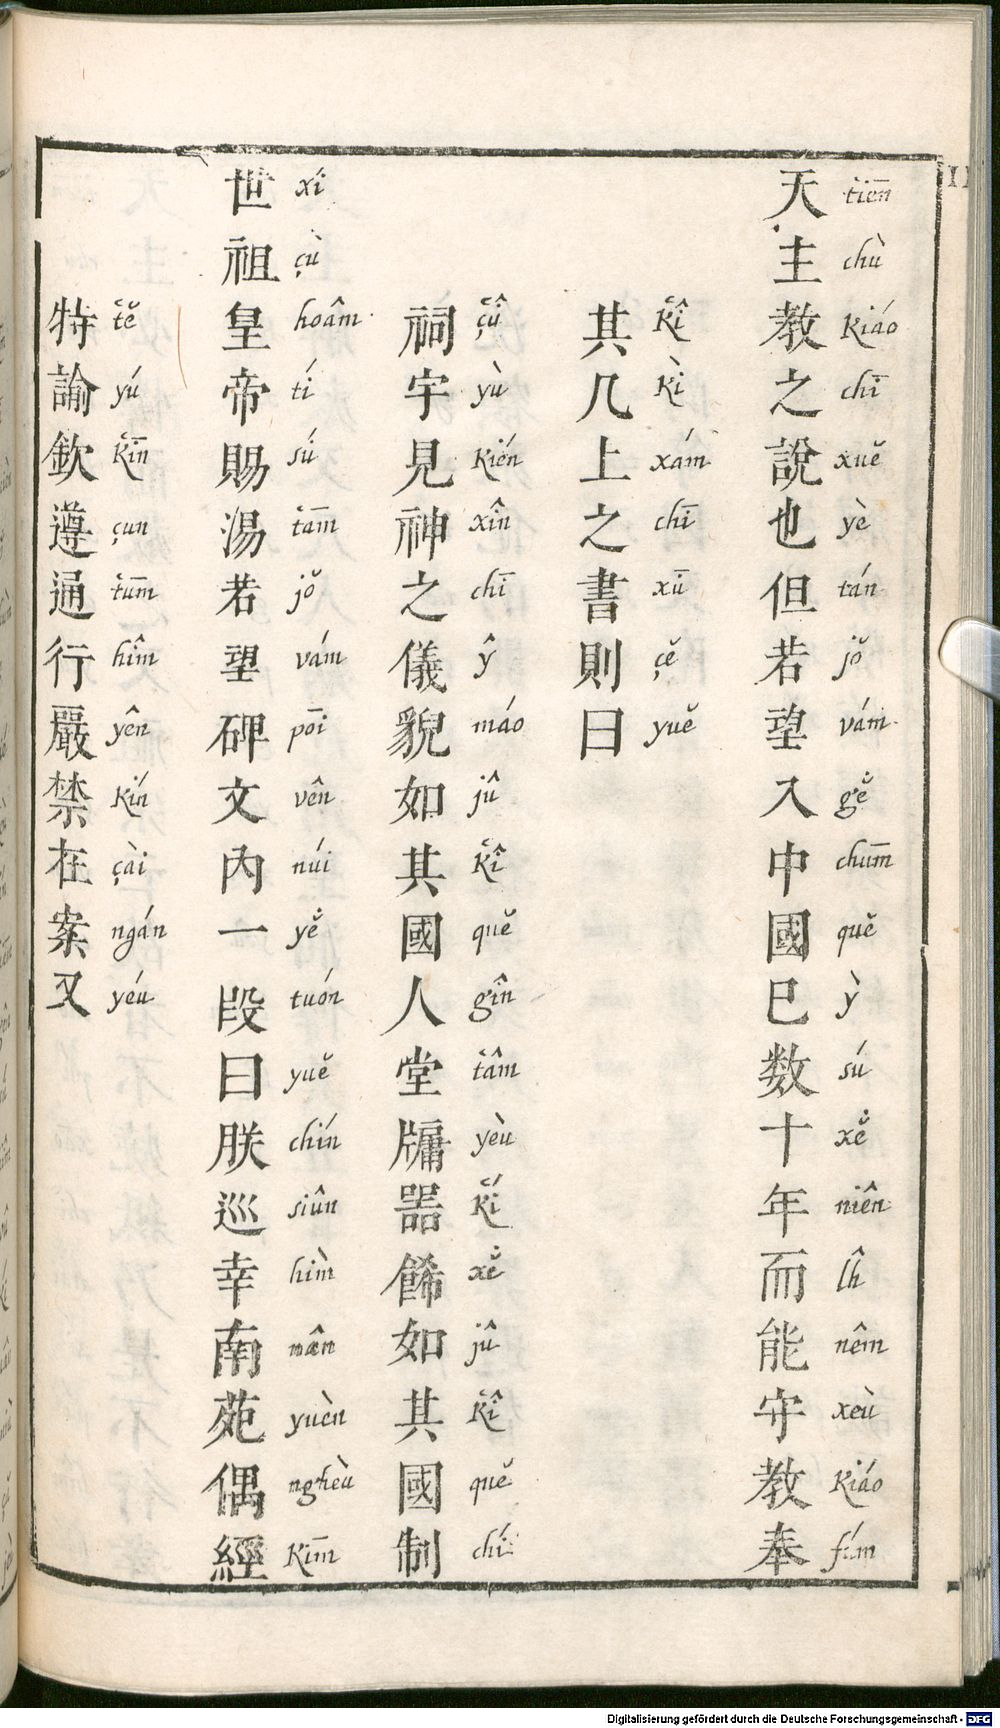 天主教之說也但若望入中國巳数十年而能守教奉
tiēn chù Kiáo chī xuĕ yè tán jŏ vám gĕ̇ chūm quĕ ỳ sú xĕ̇ niên lĥ nêm xeù Kiáo fúm
其几上之書則曰
K̔î Kì xám chī xū çĕ yuĕ
祠宇見神之儀貌如其國人堂牖器餙如其國制
ç̔û yù Kién xîn chī ŷ máo jû K̔î quĕ gîn t̔âm yeù K̔í xĕ̇ jû K̔î quĕ chí
世祖皇帝賜湯若望碑文內一段曰朕巡幸南苑偶經
xí çù hoâm tí sú t̔ām jŏ vám pōi vên núi yĕ̇ tuón yuĕ chín siûn hìm nân yuèn ngheù Kīm
特諭欽遵通行嚴禁在案又
t̔ĕ yú K̔īn çun t̔ūm hîm yên Kín çài ngán yéu
Digitalisierung gefördert durch die Deutsche Forschungsgemeinschaft - DFG